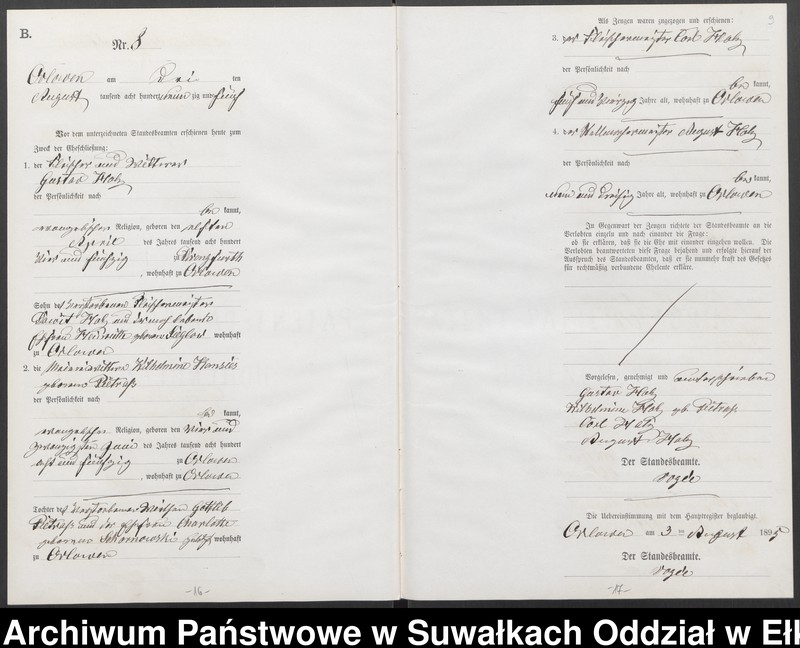 B.
Nr. 8
Orlowen am drei ten
August tausend acht hundert neun zig und fünf
Vor dem unterzeichneten Standesbeamten erschienen heute zum
Zweck der Eheschließung:
1. der Fleischer und Wittwer
Gustav Hatz
der Persönlichkeit nach
be kannt,
evangelischer Religion, geboren den elften
April des Jahres tausend acht hundert
vier und fünfzig zu
, wohnhaft zu Orlowen
Sohn des verstorbenen Fleischermeisters
Hatz und
geborene wohnhaft
zu Orlowen
2. die Wilhelmine
geborene Pietraß
der Persönlichkeit nach
be kannt,
evangelischer Religion, geboren den vier und
zwanzigsten Juni des Jahres tausend acht hundert
acht und fünfzig zu Orlowen
, wohnhaft zu Orlowen
Tochter des verstorbenen Gottlieb
Pietraß und der Charlotte
geborene wohnhaft
zu Orlowen
-16-
9
Als Zeugen waren zugezogen und erschienen:
3. der Fleischermeister Carl Hatz
der Persönlichkeit nach
be kannt,
fünf und vierzig Jahre alt, wohnhaft zu Orlowen
4. der Stellmachermeister August Hatz
der Persönlichkeit nach
be kannt,
neun und dreißig Jahre alt, wohnhaft zu Orlowen
In Gegenwart der Zeugen richtete der Standesbeamte an die
Verlobten einzeln und nach einander die Frage:
ob sie erklären, daß sie die Ehe mit einander eingehen wollen. Die
Verlobten beantworteten diese Frage bejahend und erfolgte hierauf der
Ausspruch des Standesbeamten, daß er sie nunmehr kraft des Gesetzes
für rechtmäßig verbundene Eheleute erkläre.
Vorgelesen, genehmigt und unterschrieben
Gustav Hatz
Wilhelmine Hatz geb. Pietraß
Carl Hatz
August Hatz
Der Standesbeamte.
Die Uebereinstimmung mit dem Hauptregister beglaubigt.
Orlowen am 3 ten August 1895
Der Standesbeamte.
-17-
Archiwum Państwowe w Suwałkach Oddział w Ełk